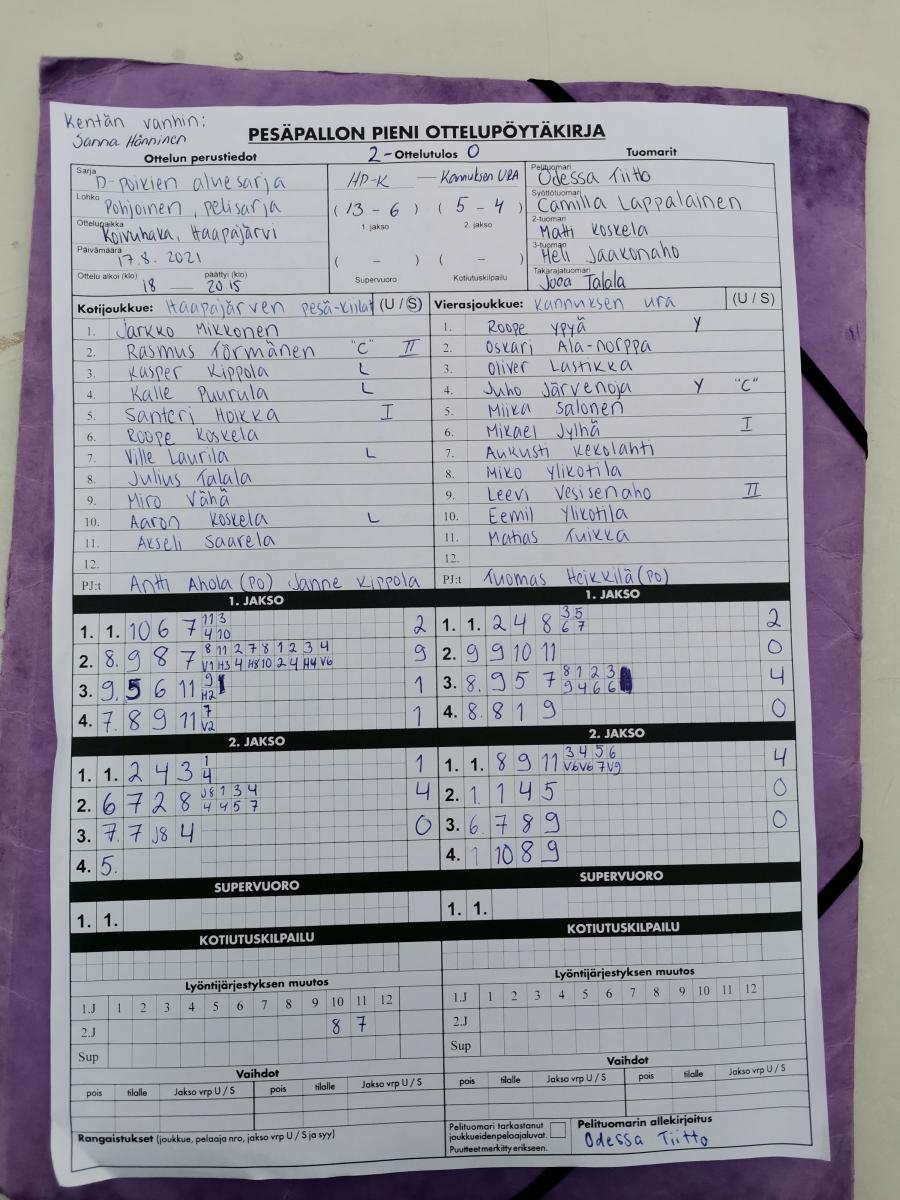 Kentän vanhin:
Sanna Hänninen
PESÄPALLON PIENI OTTELUPÖYTÄKIRJA
Ottelun perustiedot
2 - Ottelutulos 0
Tuomarit
Sarja D-poikien aluesarja
Lohko Pohjoinen, pelisarja
Ottelupaikka Koivuhaka, Haapajärvi
Päivämäärä 17.8. 2021
Ottelu alkoi (klo) päättyi (klo)
18 — 20.15
HP-K — Kannuksen URA
( 13 - 6 ) ( 5 - 4 )
1. jakso 2. jakso
( - ) ( - )
Supervuoro Kotiutuskilpailu
Pelituomari Odessa Tiitto
Syöttötuomari Camilla Lappalainen
2-tuomari Matti Koskela
3-tuomari Heli Jaakonaho
Takarajatuomari Jooa Talala
Kotijoukkue: Haapajärven pesä-kiilat (U / S)
1. Jarkko Mikkonen
2. Rasmus Törmänen "C" II
3. Kasper Kippola L
4. Kalle Puurula L
5. Santeri Hoikka I
6. Roope Koskela
7. Ville Laurila L
8. Julius Talala
9. Miro Vähä
10. Aaron Koskela L
11. Akseli Saarela
12.
PJ:t Antti Ahola (PO) Janne Kippola
Vierasjoukkue: Kannuksen ura (U / S)
1. Roope Ypyä Y
2. Oskari Ala-norppa
3. Oliver Lastikka
4. Juho Järvenoja Y "C"
5. Miika Salonen
6. Mikael Jylhä I
7. Aukusti Kekolahti
8. Miko Ylikotila
9. Leevi Vesisenaho II
10. Eemil Ylikotila
11. Matias Tuikka
12.
PJ:t Tuomas Heikkilä (PO)
1. JAKSO
1. 1. 10 6 7 11 3 2
4 10
2. 8. 9 8 7 8 11 2 7 8 1 2 3 4 9
V1 H3 4 H8 10 2 4 H4 V6
3. 9. 5 6 11 9 1
H2
4. 7. 8 9 11 7 1
V2
1. JAKSO
1. 1. 2 4 8 3 5 2
6 7
2. 9 9 10 11 0
3. 8. 9 5 7 8 1 2 3 4
9 4 6 6
4. 8. 8 1 9 0
2. JAKSO
1. 1. 2 4 3 1 1
4
2. 6 7 2 8 J8 1 3 4 4
4 4 5 7
3. 7. 7 J8 4 0
4. 5.
2. JAKSO
1. 1. 8 9 11 3 4 5 6 4
V6 V6 7 V9
2. 1. 1 4 5 0
3. 6. 7 8 9 0
4. 1 10 8 9
SUPERVUORO
1. 1.
SUPERVUORO
1. 1.
KOTIUTUSKILPAILU
KOTIUTUSKILPAILU
Lyöntijärjestyksen muutos
1.J 1 2 3 4 5 6 7 8 9 10 11 12
2.J 8 7
Sup
Lyöntijärjestyksen muutos
1.J 1 2 3 4 5 6 7 8 9 10 11 12
2.J
Sup
Vaihdot
pois tilalle Jakso vrp U / S pois tilalle Jakso vrp U / S
Vaihdot
pois tilalle Jakso vrp U / S pois tilalle Jakso vrp U / S
Rangaistukset (joukkue, pelaaja nro, jakso vrp U / S ja syy)
Pelituomari tarkastanut
joukkueidenpelaajaluvat.
Puutteet merkitty erikseen.
Pelituomarin allekirjoitus
Odessa Tiitto